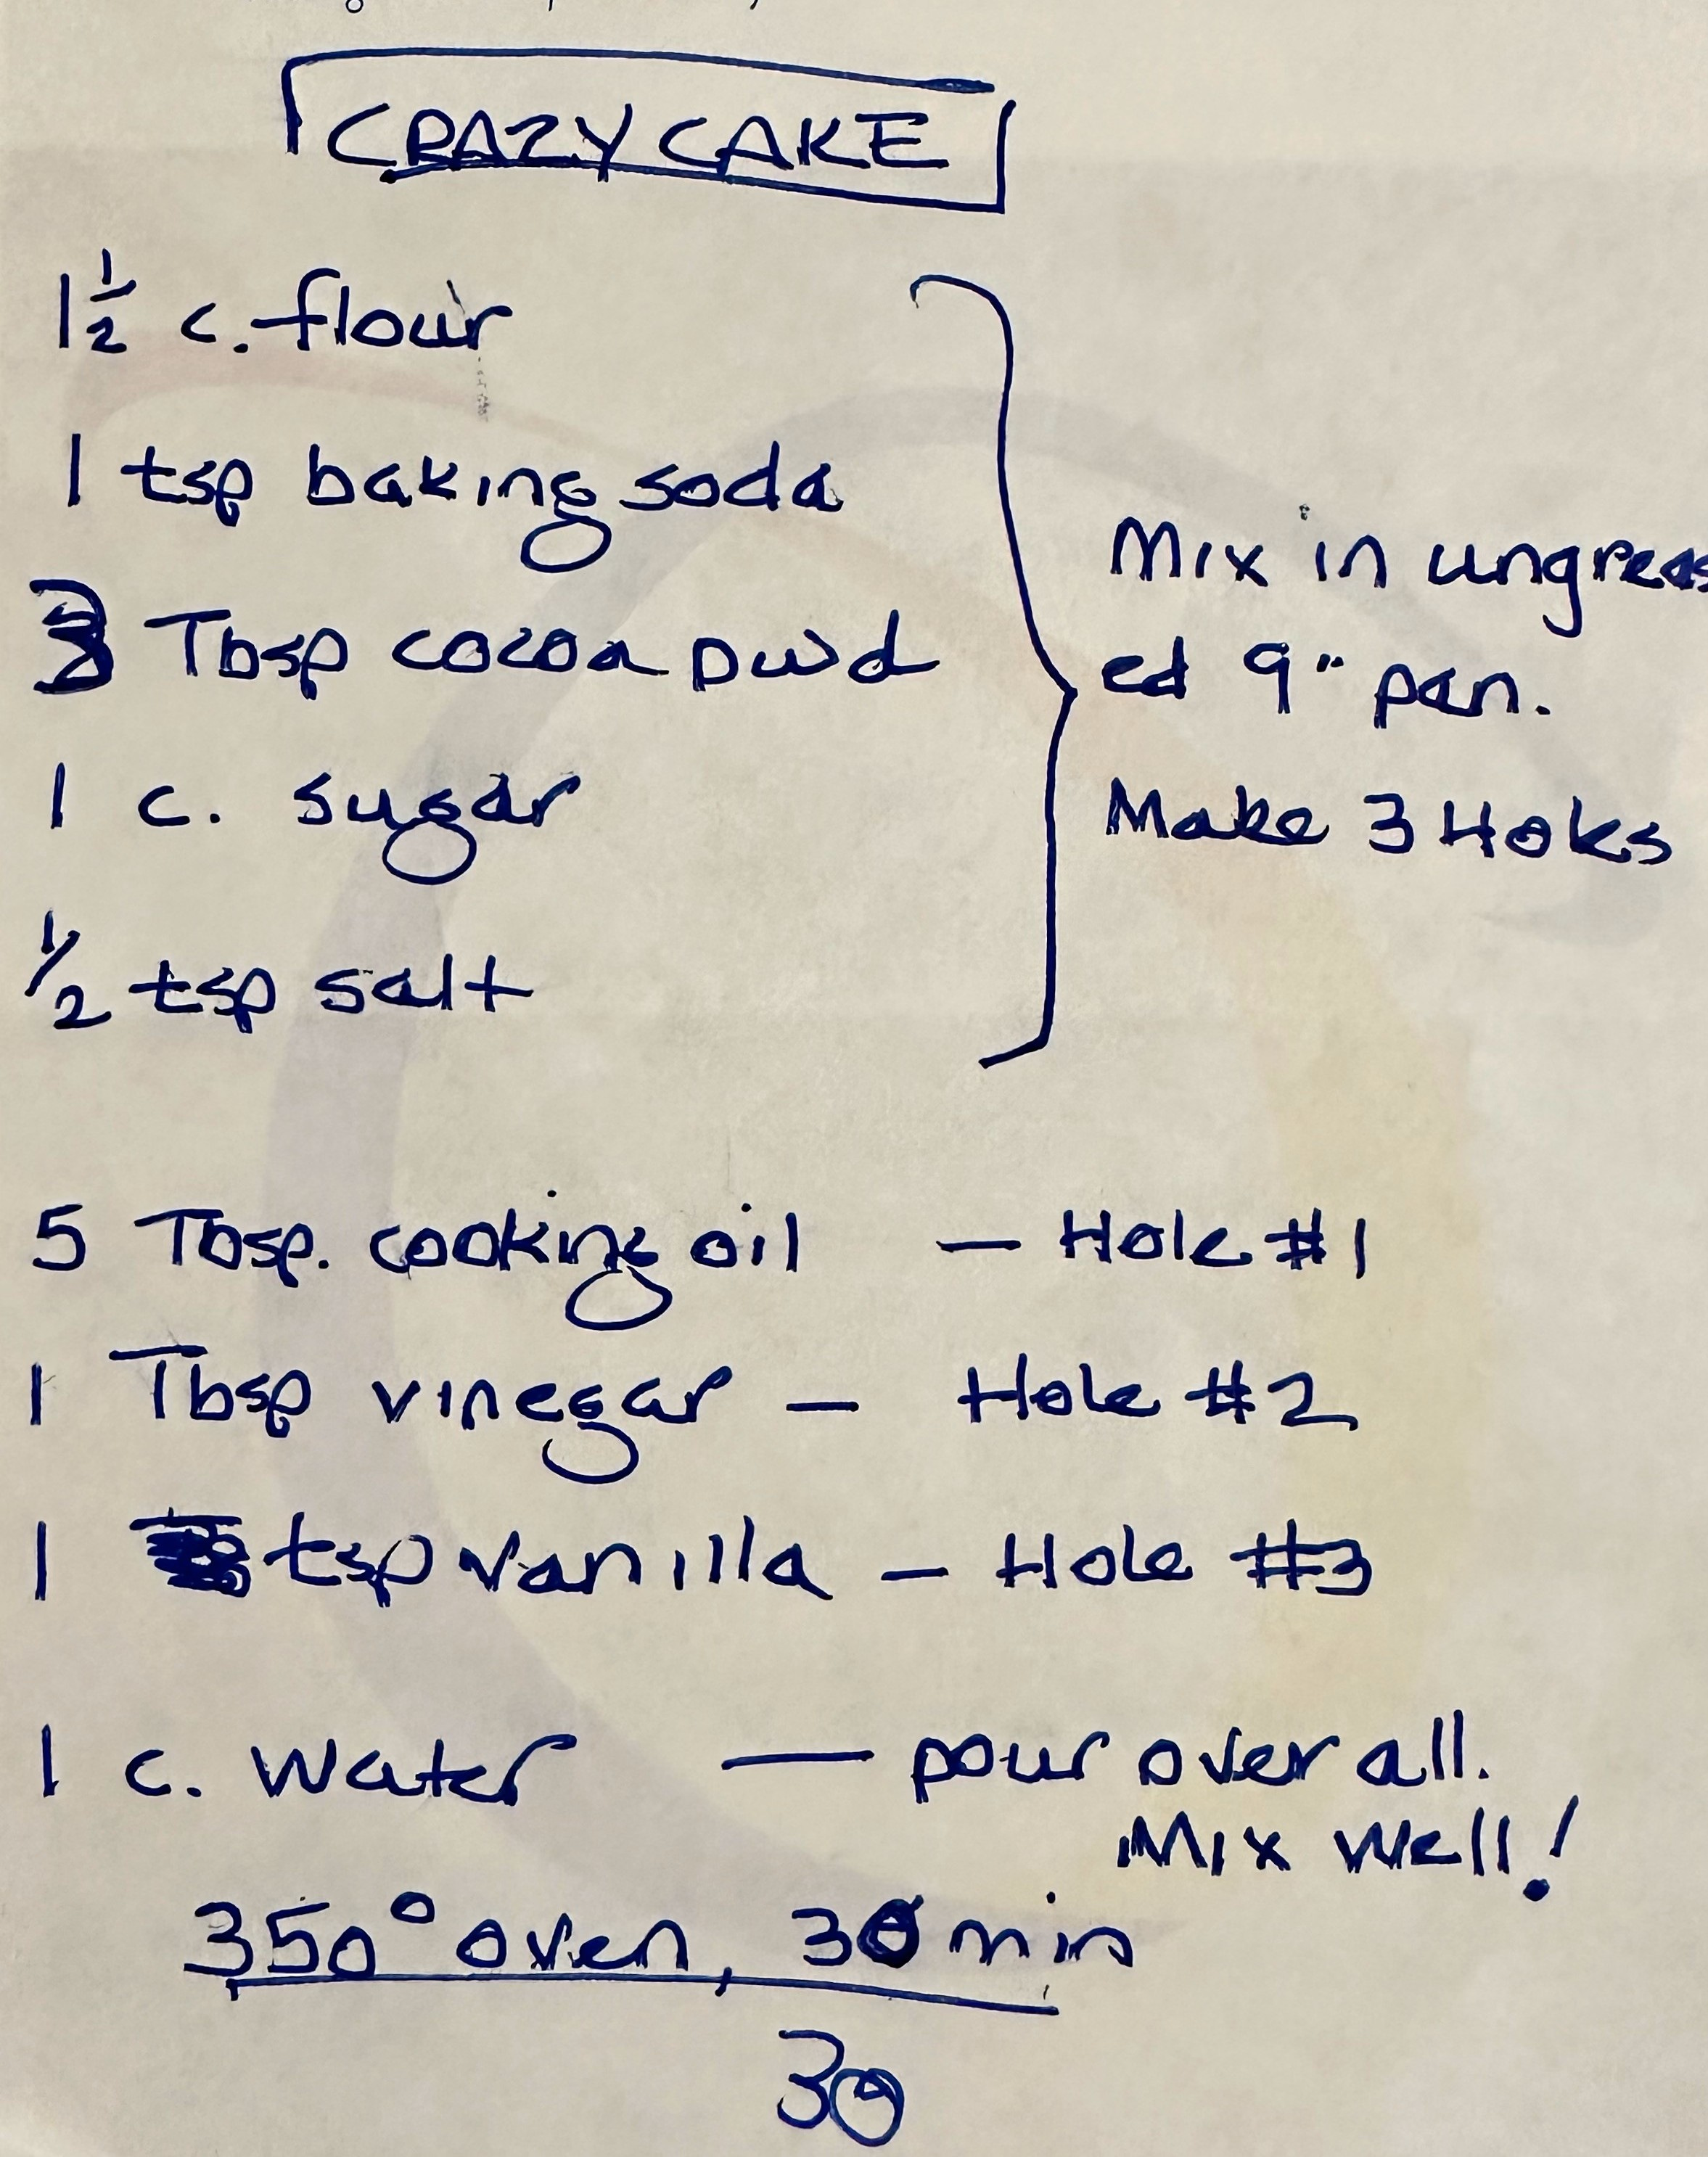 CRAZY CAKE
1 1/2 c. flour
1 tsp baking soda
3 Tbsp cocoa pwd
1 c. sugar
1/2 tsp salt
Mix in ungreas
ed 9" pan.
Make 3 Holes
5 Tbsp. cooking oil — Hole #1
1 Tbsp vinegar — Hole #2
1 tsp vanilla — Hole #3
1 c. water — pour over all.
Mix well!
350° oven, 30 min
30